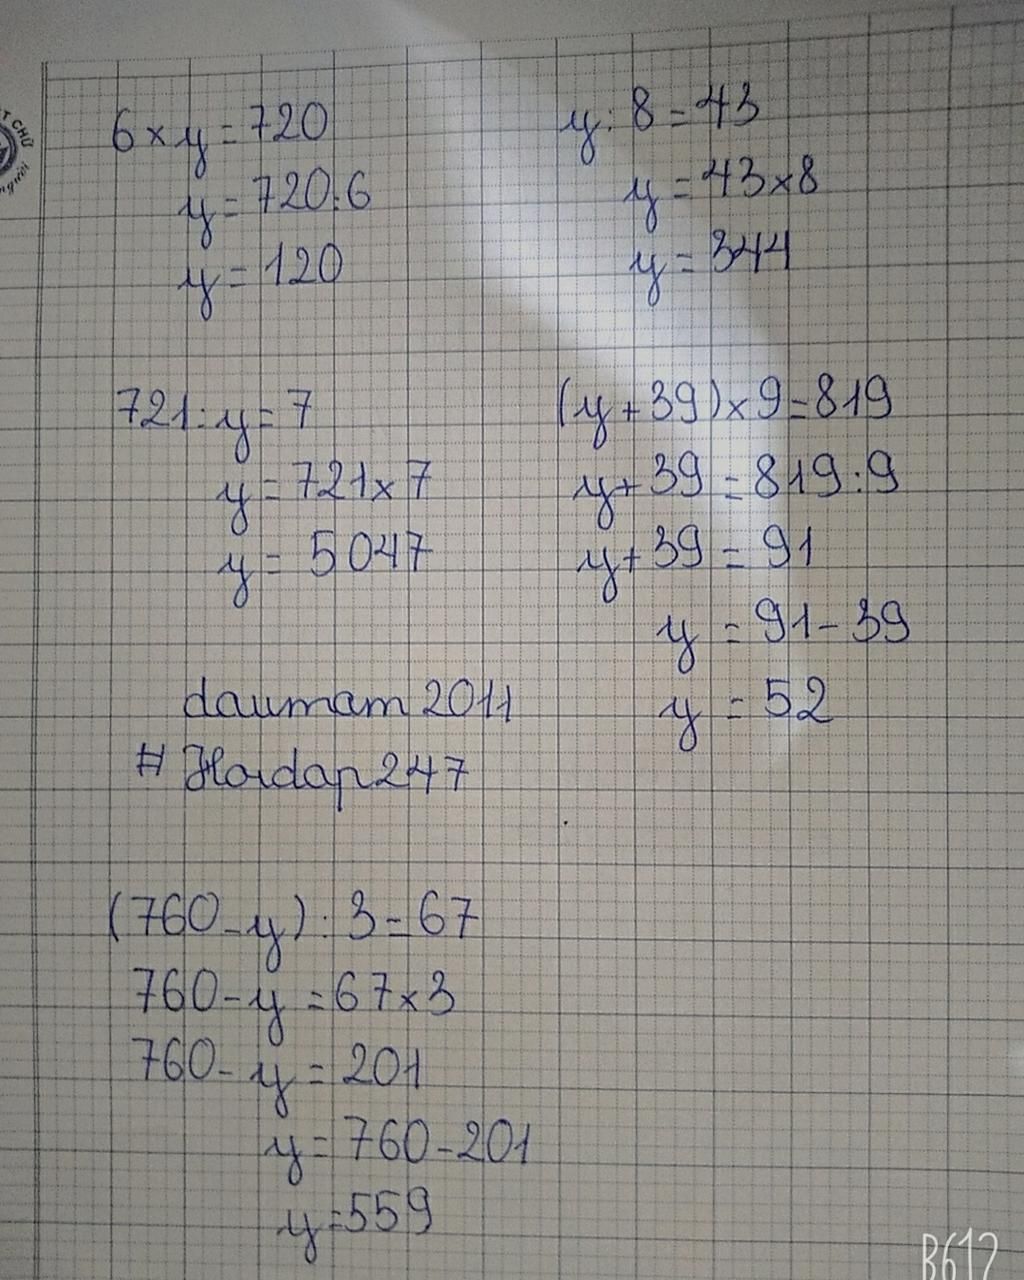 6 x y = 720
y = 720 : 6
y = 120
y : 8 = 43
y = 43 x 8
y = 344
721 : y = 7
y = 721 x 7
y = 5047
(y + 39) x 9 = 819
y + 39 = 819 : 9
y + 39 = 91
y = 91 - 39
y = 52
daumam 2011
# Hoidap247
(760 - y) : 3 = 67
760 - y = 67 x 3
760 - y = 201
y = 760 - 201
y = 559
B612